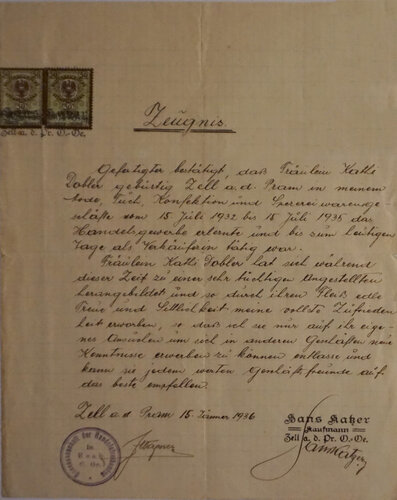 Zell a. d. Pr. O.-Oe.
Zeugnis.
Gefertigter bestätigt, daß Fräulein Kathi
Dobler gebürtig Zell a. d. Pram in meinem
Mode, Tuch, Konfektion und Spezereiwarenge-
schäfte vom 15. Juli 1932 bis 15. Juli 1935 das
Handelsgewerbe erlernte und bis zum heutigen
Tage als Verkäuferin tätig war.
Fräulein Kathi Dobler hat sich während
dieser Zeit zu einer sehr tüchtigen Angestellten
herangebildet und so durch ihren Fleiß edle
Treue und Sittlichkeit meine vollste Zufrieden
heit erworben, so daß ich sie nur auf ihr eige-
nes Ansuchen um sich in anderen Geschäften neue
Kenntnisse erwerben zu können entlasse und
kann sie jedem werten Geschäftsfreunde auf
das beste empfehlen.
Zell a. d. Pram 15. Jänner 1936
Hans Katzer
Kaufmann
Zell a. d. Pr. O.-Oe.
Hans Katzer